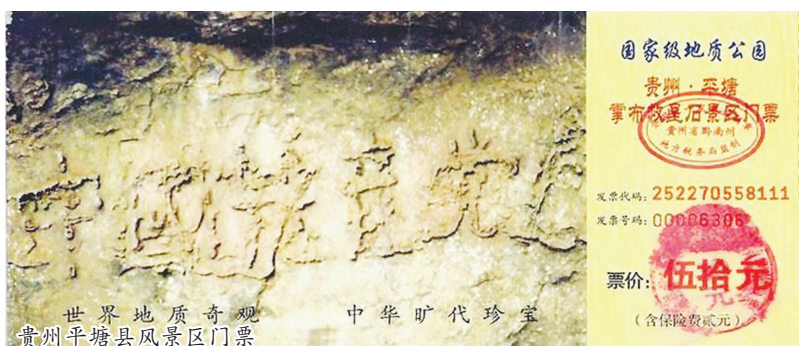 中國共産党亡
世界地质奇观 中华旷代珍宝
贵州平塘县风景区门票
国家级地质公园
贵州·平塘
掌布救星石景区门票
贵州省黔南州
地方税务局监制
发票代码：252270558111
发票号码：00006306
票价：伍拾元
（含保险费贰元）